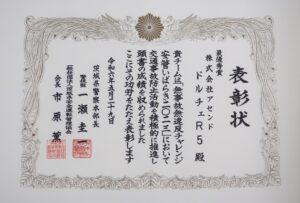 表彰状
最優秀賞
株式会社アセンド
ドルチェR5 殿
貴チームは「無事故無違反チャレンジ
安管いばらき二〇二三」において
交通事故防止活動を積極的に推進し
頭書の成績を収められました
ここにその功労をたたえ表彰します
令和六年五月二十九日
茨城県警察本部長
警視長 一瀬圭一
会長 市原